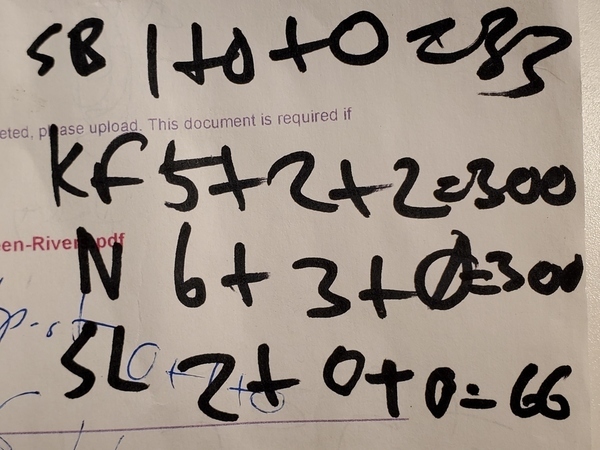 SB 1+0+0=33
eted, please upload. This document is required if
KF 5+2+2=300
een-River.pdf
N 6+3+0=300
SL 2+0+0=66